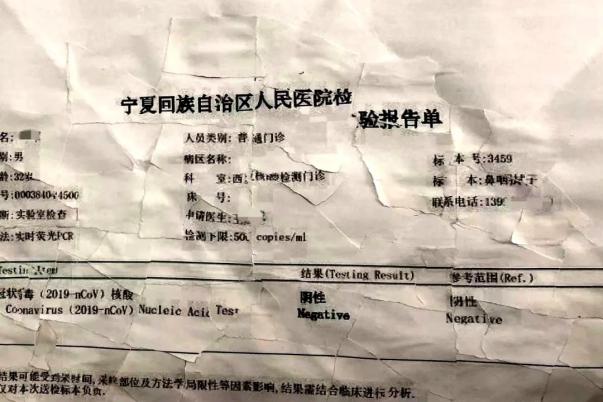 宁夏回族自治区人民医院检
验报告单
名: 人员类别: 普通门诊
别:男 病区名称: 标 本 号:3459
龄:32岁 科 室:西 核酸检测门诊 标 本:鼻咽拭子
号:0003840 4500 床 号: 联系电话:139
断:实验室检查 申请医生:
法:实时荧光PCR 检测下限:500 copies/ml
Testing Item 结果(Testing Result) 参考范围(Ref.)
冠状病毒 (2019-nCoV) 核酸 阴性 阴性
Coonavirus (2019-nCoV) Nucleic Acid Test Negative Negative
结果可能受到采样时间, 采样部位及方法学局限性等因素影响, 结果需结合临床进行分析.
仅对本次送检标本负责.